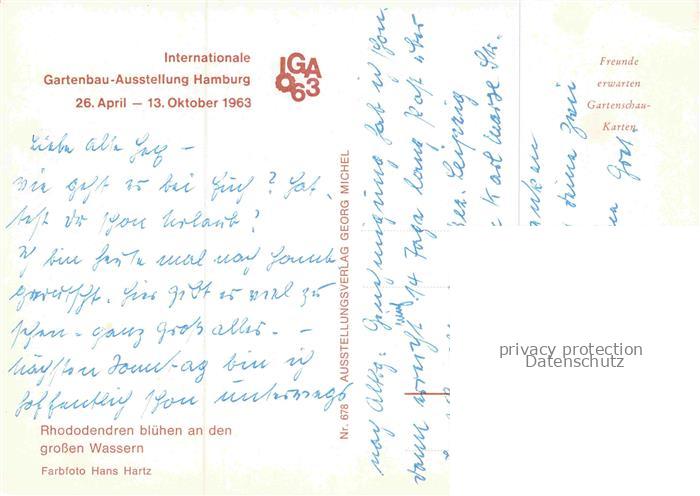 Internationale
Gartenbau-Ausstellung Hamburg
26. April — 13. Oktober 1963
IGA
63
Freunde
erwarten
Gartenschau-
Karten
Liebe alle
wie geht es bei Euch? Hat-
test Du schon Urlaub?
Ich bin heute mal nach Hamb.
gerutscht. Hier gibt es viel zu
sehen - ganz groß alles. -
nächsten Sonntag bin ich
hoffentlich schon unterwegs
nach Genehmigung hab ich schon.
dann 14 Tage lang
Leipzig
Karl Marx Str.
deine
Nr. 678 AUSSTELLUNGSVERLAG GEORG MICHEL
Rhododendren blühen an den
großen Wassern
Farbfoto Hans Hartz
privacy protection
Datenschutz